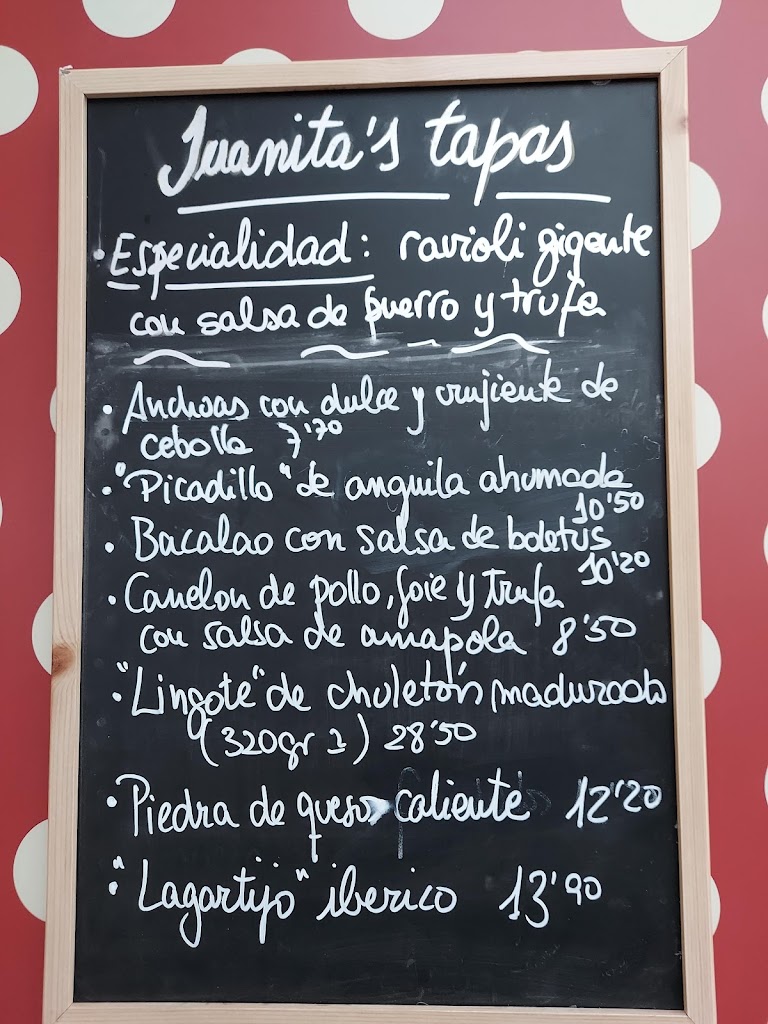 Juanita's tapas
· Especialidad: ravioli gigante
con salsa de puerro y trufa
· Anchoas con dulce y crujiente de
cebolla 7'70
· "Picadillo" de anguila ahumada
10'50
· Bacalao con salsa de boletus
10'20
· Canelon de pollo, foie y trufa
con salsa de amapola 8'50
· "Lingote" de chuletón madurado
(320gr ) 28'50
· Piedra de queso caliente 12'20
· "Lagartijo" iberico 13'90